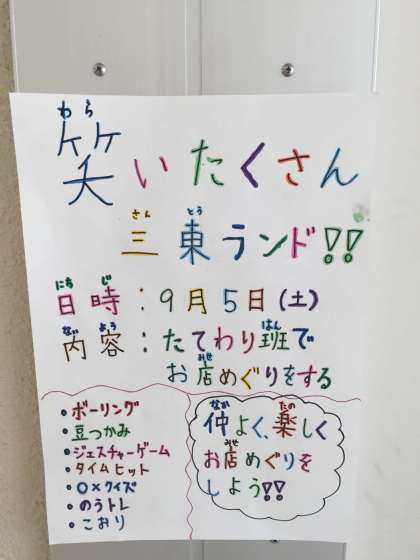 わら
笑いたくさん
さん とう
三東ランド!!
にち じ
日時:9月5日(土)
ない よう はん
内容:たてわり班で
みせ
お店めぐりをする
・ボーリング
・豆つかみ
・ジェスチャーゲーム
・タイムヒット
・○×クイズ
・のうトレ
・こおり
なか たの
仲よく、楽しく
みせ
お店めぐりを
しよう!!